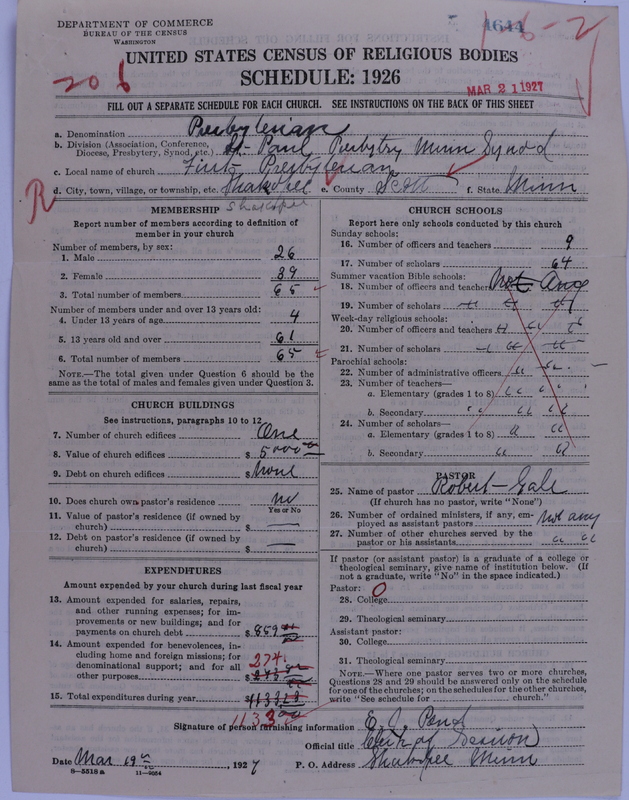 DEPARTMENT OF COMMERCE
BUREAU OF THE CENSUS
WASHINGTON
4644
16-2
206
UNITED STATES CENSUS OF RELIGIOUS BODIES
SCHEDULE: 1926
MAR 21 1927
FILL OUT A SEPARATE SCHEDULE FOR EACH CHURCH. SEE INSTRUCTIONS ON THE BACK OF THIS SHEET
a. Denomination Presbyterian
b. Division (Association, Conference, Diocese, Presbytery, Synod, etc.) St. Paul Presbytry Minn Synod
c. Local name of church First Presbyterian
d. City, town, village, or township, etc. Shakopee e. County Scott f. State Minn
R
Shakopee
MEMBERSHIP
Report number of members according to definition of
member in your church
Number of members, by sex:
1. Male 26
2. Female 39
3. Total number of members 65
Number of members under and over 13 years old:
4. Under 13 years of age 4
5. 13 years old and over 61
6. Total number of members 65
NOTE.—The total given under Question 6 should be
same as the total of males and females given under Question 3.
CHURCH BUILDINGS
See instructions, paragraphs 10 to 12
7. Number of church edifices One
8. Value of church edifices $ 5000
9. Debt on church edifices $ None
10. Does church own pastor's residence no
Yes or No
11. Value of pastor's residence (if owned by
church) $ —
12. Debt on pastor's residence (if owned by
church) $ —
EXPENDITURES
Amount expended by your church during last fiscal year
13. Amount expended for salaries, repairs,
and other running expenses; for im-
provements or new buildings; and for
payments on church debt $ 859
14. Amount expended for benevolences, in-
cluding home and foreign missions; for
denominational support; and for all
other purposes $ 274
15. Total expenditures during year $ 1133
1133
CHURCH SCHOOLS
Report here only schools conducted by this church
Sunday schools:
16. Number of officers and teachers 9
17. Number of scholars 64
Summer vacation Bible schools:
18. Number of officers and teachers Not Any
19. Number of scholars " " "
Week-day religious schools:
20. Number of officers and teachers " " "
21. Number of scholars " " "
Parochial schools:
22. Number of administrative officers " "
23. Number of teachers—
a. Elementary (grades 1 to 8) " " "
b. Secondary " " "
24. Number of scholars—
a. Elementary (grades 1 to 8) " "
b. Secondary " "
PASTOR
25. Name of pastor Robert Gale
(If church has no pastor, write "None")
26. Number of ordained ministers, if any, em-
ployed as assistant pastors not any
27. Number of other churches served by the
pastor or his assistants " "
If pastor (or assistant pastor) is a graduate of a college or
theological seminary, give name of institution below. (If
not a graduate, write "No" in the space indicated.)
Pastor: O
28. College
29. Theological seminary
Assistant pastor:
30. College
31. Theological seminary
NOTE.—Where one pastor serves two or more churches,
Questions 28 and 29 should be answered only on the schedule
for one of the churches; on the schedules for the other churches,
write "See schedule for church."
Signature of person furnishing information
Official title Clerk of Session
Date Mar 19th, 1927 P. O. Address Shakopee Minn
8—5518 a 11—9054